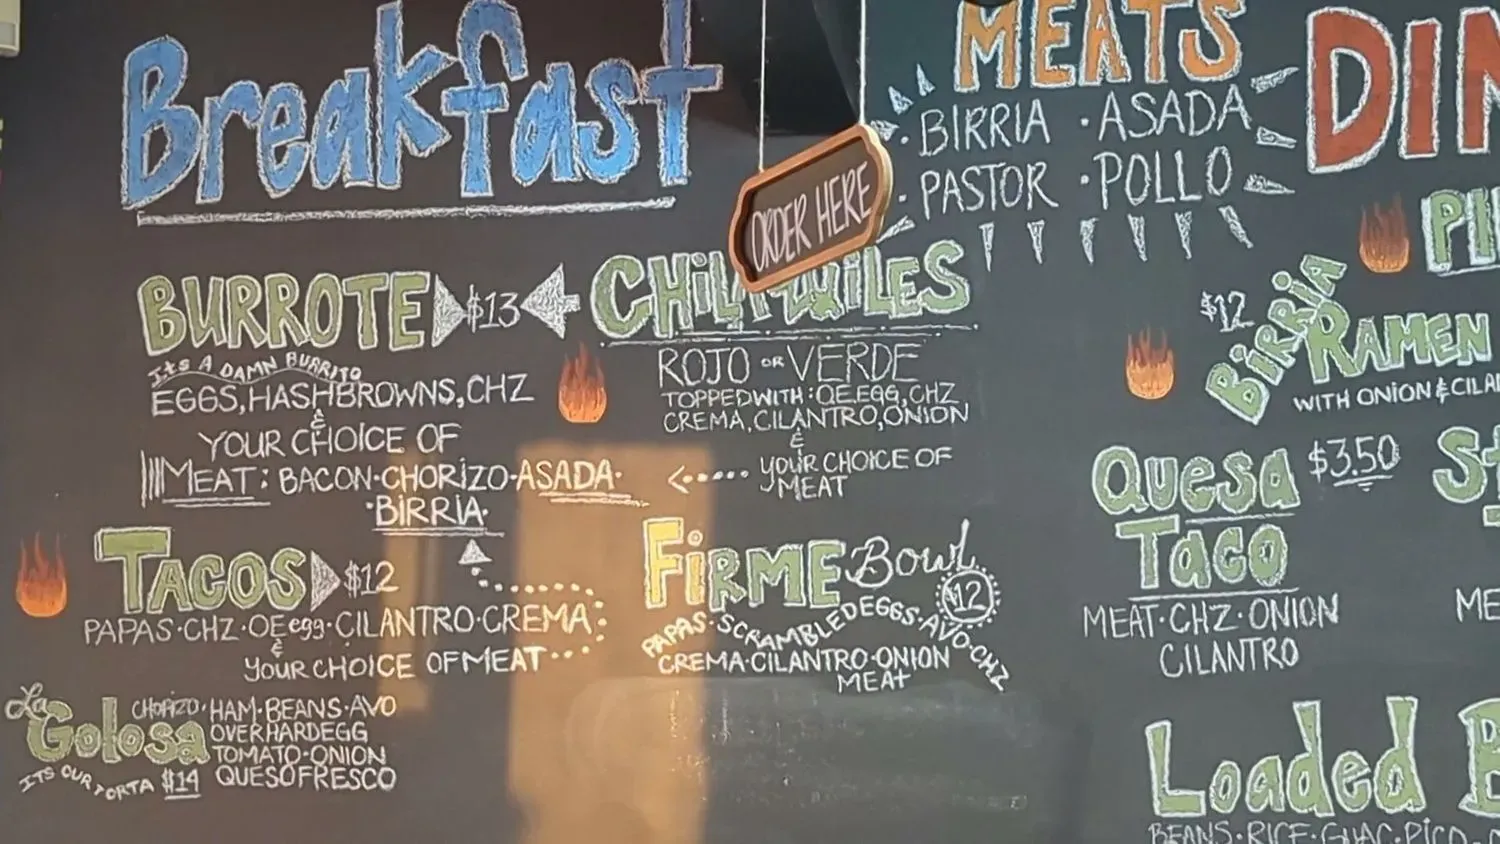 Breakfast
BURROTE $13
ITS A DAMN BURRITO
EGGS, HASHBROWNS, CHZ
&
YOUR CHOICE OF
MEAT: BACON·CHORIZO·ASADA·
·BIRRIA·
TACOS $12
PAPAS·CHZ·OE egg·CILANTRO·CREMA
&
YOUR CHOICE OF MEAT
La Golosa
ITS OUR TORTA $14
CHORIZO·HAM·BEANS·AVO
OVERHARDEGG
TOMATO·ONION
QUESOFRESCO
ORDER HERE
CHILAQUILES
ROJO OR VERDE
TOPPED WITH: OE.EGG, CHZ
CREMA, CILANTRO, ONION
&
YOUR CHOICE OF
MEAT
FIRME Bowl
$12
PAPAS·SCRAMBLED EGGS·AVO·CHZ
CREMA·CILANTRO·ONION
MEAT
MEATS
·BIRRIA ·ASADA
·PASTOR ·POLLO
$12
BIRRIA
RAMEN
WITH ONION &
Quesa $3.50
Taco
MEAT·CHZ·ONION
CILANTRO
Loaded
BEANS·RICE·GUAC·PICO